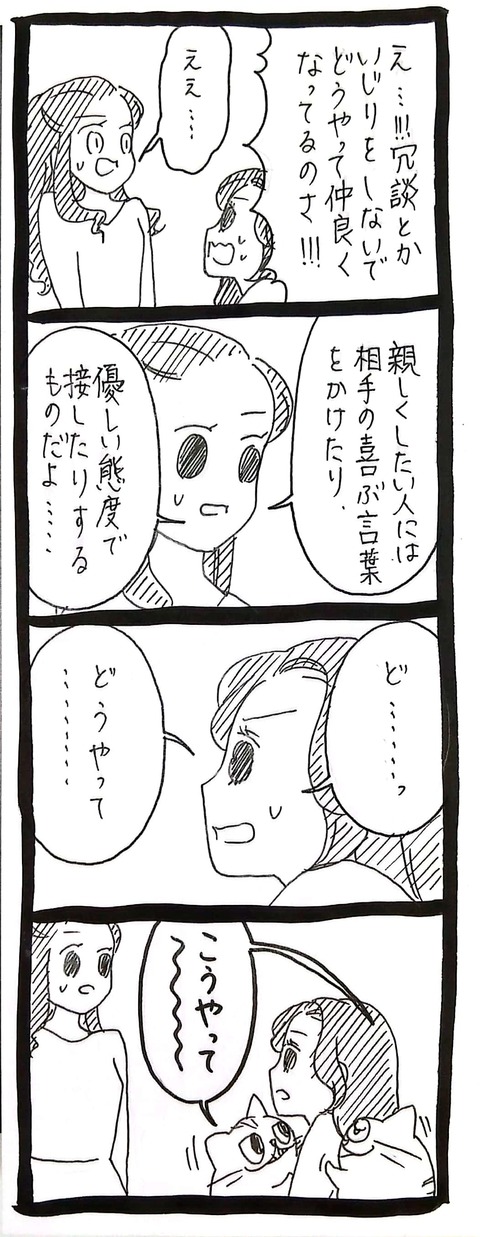 え…!!!冗談とか
いじりをしないで
どうやって仲良く
なってるのさ!!!
ええ……
親しくしたい人には
相手の喜ぶ言葉
をかけたり、
優しい態度で
接したりする
ものだよ……
ど………っ
どうやって
………
こうやって
〜〜〜